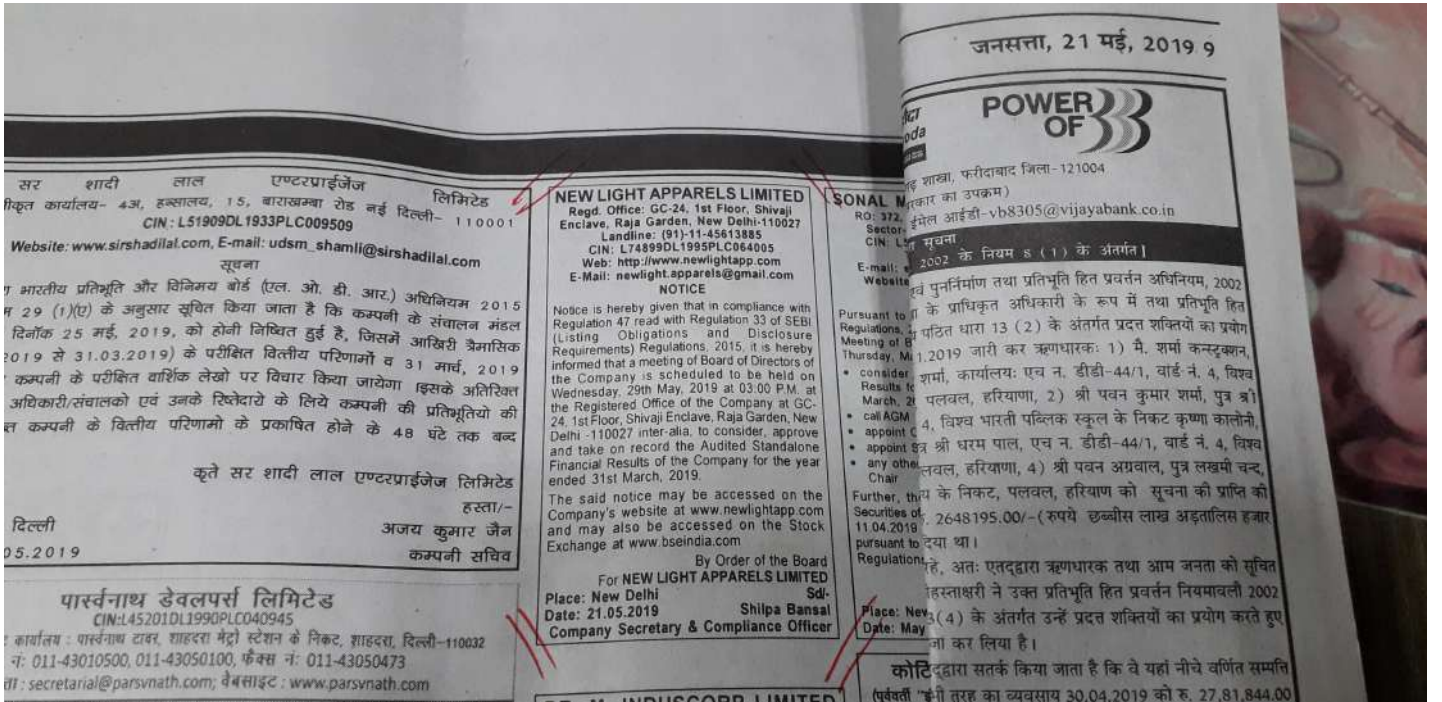 जनसत्ता, 21 मई, 2019 9
सर शादी लाल एण्टरप्राईजेज लिमिटेड
कार्यालय- 4अ, हन्सालय, 15, बाराखम्बा रोड नई दिल्ली- 110001
CIN : L51909DL1933PLC009509
Website: www.sirshadilal.com, E-mail: udsm_shamli@sirshadilal.com
सूचना
भारतीय प्रतिभूति और विनिमय बोर्ड (एल. ओ. डी. आर.) अधिनियम 2015
29 (1)(ए) के अनुसार सूचित किया जाता है कि कम्पनी के संचालन मंडल
दिनॉक 25 मई, 2019, को होनी निष्चित हुई है, जिसमें आखिरी त्रैमासिक
2019 से 31.03.2019) के परीक्षित वित्तीय परिणामों व 31 मार्च, 2019
कम्पनी के परीक्षित वार्शिक लेखो पर विचार किया जायेगा ।इसके अतिरिक्त
अधिकारी/संचालको एवं उनके रिष्तेदारो के लिये कम्पनी की प्रतिभूतियो की
कम्पनी के वित्तीय परिणामो के प्रकाषित होने के 48 घंटे तक बन्द
कृते सर शादी लाल एण्टरप्राईजेज लिमिटेड
हस्ता/-
दिल्ली अजय कुमार जैन
05.2019 कम्पनी सचिव
पार्श्वनाथ डेवलपर्स लिमिटेड
CIN:L45201DL1990PLC040945
कार्यालय : पार्श्वनाथ टावर, शाहदरा मेट्रो स्टेशन के निकट, शाहदरा, दिल्ली-110032
नं: 011-43010500, 011-43050100, फैक्स नं: 011-43050473
secretarial@parsvnath.com; वेबसाइट : www.parsvnath.com
NEW LIGHT APPARELS LIMITED
Regd. Office: GC-24, 1st Floor, Shivaji
Enclave, Raja Garden, New Delhi-110027
Landline: (91)-11-45613885
CIN: L74899DL1995PLC064005
Web: http://www.newlightapp.com
E-Mail: newlight.apparels@gmail.com
NOTICE
Notice is hereby given that in compliance with
Regulation 47 read with Regulation 33 of SEBI
(Listing Obligations and Disclosure
Requirements) Regulations, 2015, it is hereby
informed that a meeting of Board of Directors of
the Company is scheduled to be held on
Wednesday, 29th May, 2019 at 03:00 P.M. at
the Registered Office of the Company at GC-
24, 1st Floor, Shivaji Enclave, Raja Garden, New
Delhi -110027 inter-alia, to consider, approve
and take on record the Audited Standalone
Financial Results of the Company for the year
ended 31st March, 2019.
The said notice may be accessed on the
Company's website at www.newlightapp.com
and may also be accessed on the Stock
Exchange at www.bseindia.com
By Order of the Board
For NEW LIGHT APPARELS LIMITED
Place: New Delhi Sd/-
Date: 21.05.2019 Shilpa Bansal
Company Secretary & Compliance Officer
INDUSCORP LIMITED
SONAL
RO: 372,
Sector-
CIN:
E-mail:
Website
Pursuant to
Regulations,
Meeting of
Thursday,
• consider
Results
March,
• call AGM
• appoint
• appoint
• any other
Chair
Further,
Securities of
11.04.2019
pursuant to
Regulation
Place: New
Date: May
POWER
OF
शाखा, फरीदाबाद जिला-121004
का उपक्रम)
ईमेल आईडी-vb8305@vijayabank.co.in
सूचना
2002 के नियम 8 (1) के अंतर्गत]
पुनर्निर्माण तथा प्रतिभूति हित प्रवर्तन अधिनियम, 2002
के प्राधिकृत अधिकारी के रूप में तथा प्रतिभूति हित
पठित धारा 13 (2) के अंतर्गत प्रदत्त शक्तियों का प्रयोग
2019 जारी कर ऋणधारकः 1) मै. शर्मा कन्स्ट्रक्शन,
शर्मा, कार्यालयः एच न. डीडी-44/1, वार्ड नं. 4, विश्व
पलवल, हरियाणा, 2) श्री पवन कुमार शर्मा, पुत्र श्री
4, विश्व भारती पब्लिक स्कूल के निकट कृष्णा कालोनी,
श्री धरम पाल, एच न. डीडी-44/1, वार्ड नं. 4, विश्व
हरियाणा, 4) श्री पवन अग्रवाल, पुत्र लखमी चन्द,
के निकट, पलवल, हरियाण को सूचना की प्राप्ति की
2648195.00/-(रुपये छब्बीस लाख अड़तालिस हजार
दिया था।
रहे, अतः एतद्द्वारा ऋणधारक तथा आम जनता को सूचित
ने उक्त प्रतिभूति हित प्रवर्तन नियमावली 2002
(4) के अंतर्गत उन्हें प्रदत्त शक्तियों का प्रयोग करते हुए
कर लिया है।
सतर्क किया जाता है कि वे यहां नीचे वर्णित सम्पत्ति
तरह का व्यवसाय 30.04.2019 को रु. 27,81,844.00